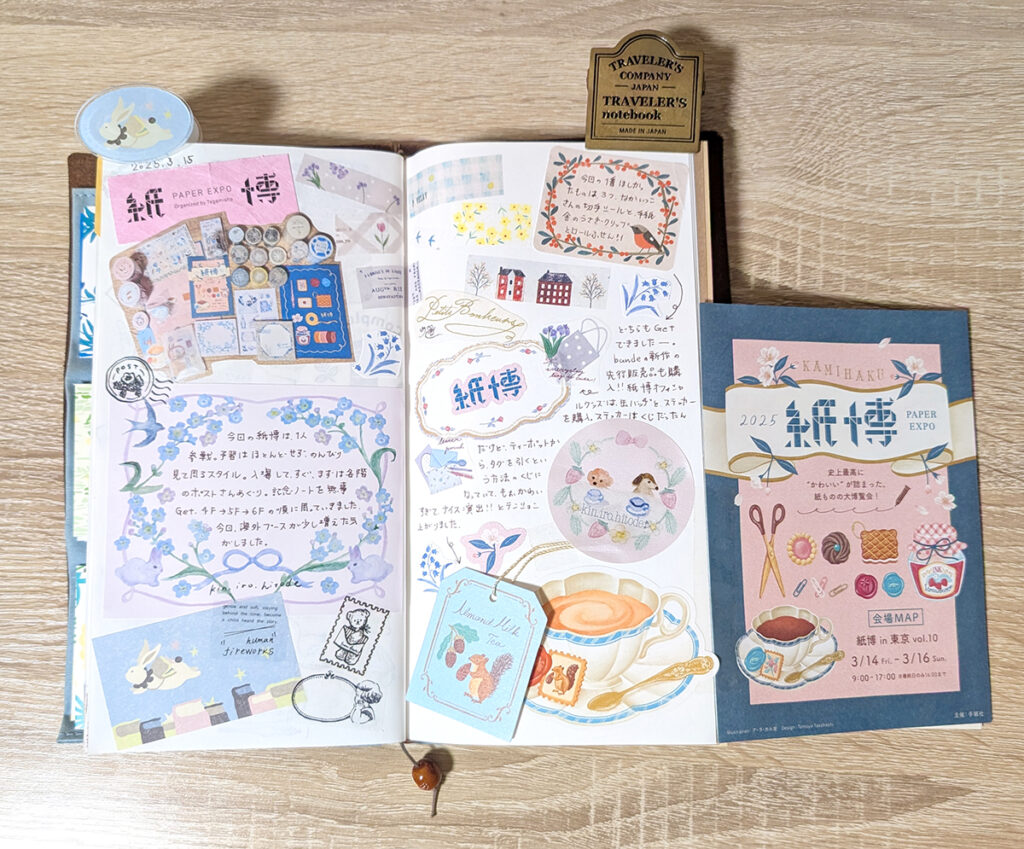 2025.3.15
紙 PAPER EXPO 博
Organized by Tegamisha
紙博
POST
今回の紙博は、1人
参戦。予習はほとんどせず、のんびり
見て周るスタイル。入場して、すぐ、まずは各階
のポストさんめぐり。記念ノートを無事
Get. 4F→5F→6Fの順に周っていきました。
今回、海外ブースが少し増えた気
がしました。
kin.iro.hitode
gentle and soft, staying
behind the time, become
a child heard the story.
"human
fireworks"
TRAVELER'S
COMPANY
JAPAN
TRAVELER'S
notebook
MADE IN JAPAN
今回の1番ほしかっ
たものは3つ。なかいっこ
さんの切手シールと、手紙
舎のうさぎ・クリップ
とロールふせん!!
Petit Bonheur
紙博
どちらもGet
できましたー。
bande の新作の
先行販売品も購
入!! 紙博オフィシャ
ルグッズは、缶バッチと、ステッカー
を購入。ステッカーはくじだったん
だけど、ティーポットか
ら、タグを引くとい
う方法のくじに
なっていて、もぉ、かわい
すぎてナイス演出!!とテンション
上がりました。
kin.iro.hitode
Almond Milk
Tea
KAMIHAKU
2025 紙博 PAPER
EXPO
史上最高に
"かわいい"が詰まった、
紙ものの大博覧会!
会場MAP
紙博 in 東京 vol.10
3/14 Fri. – 3/16 Sun.
9:00-17:00 ※最終日のみ16:00まで
主催:手紙社